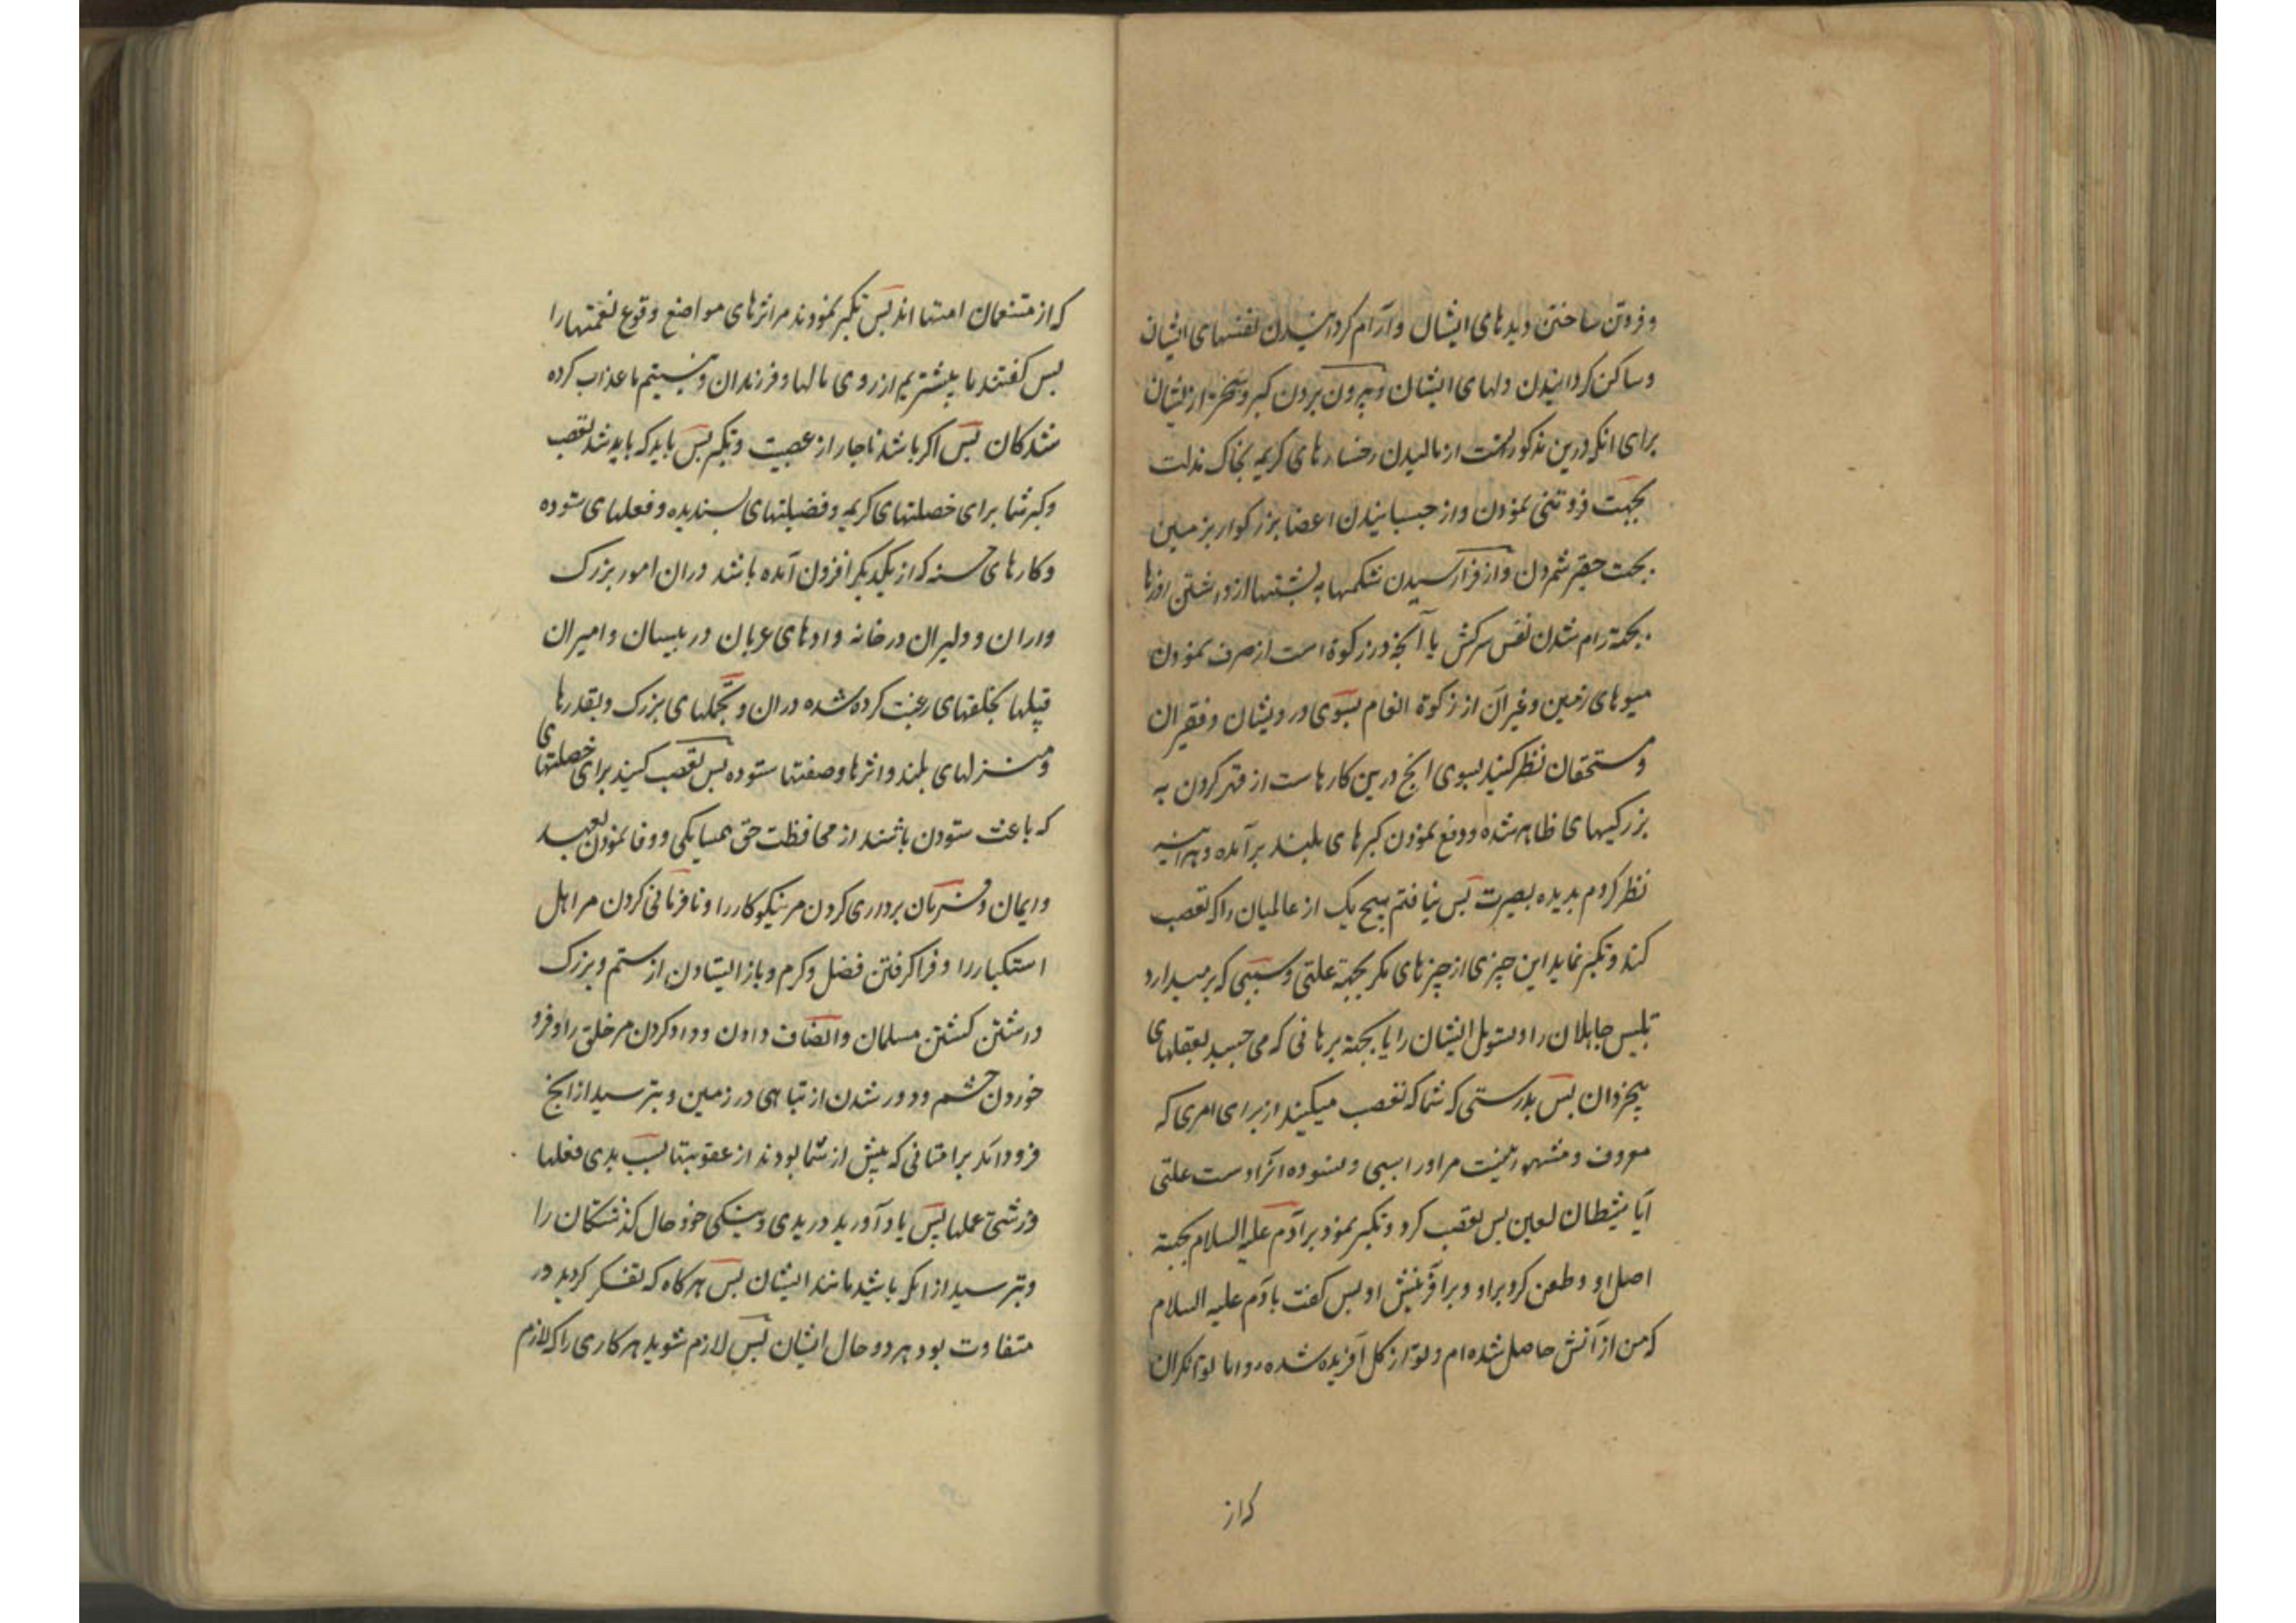 وفروتن ساختن دیدهای ایشان وآرام کردانیدن نفسهای ایشان
وساکن کردانیدن دلهای ایشان وبیرون بردن کبر و از ایشان
برای انکه درین مذکور است از مالیدن رخسارهای کریمه بخاک مذلت
بجهت فروتنی نمودن واز چسبانیدن اعضا بزرکوار بزمین
بجهت حقیر شمردن واز فرا رسیدن شکمها به پشتها از داشتن روزها
بجهة رام شدن نفس سرکش با آنچه در زکوة است از صرف نمودن
میوهای زمین وغیر آن از زکوة انعام بسوی درویشان وفقیران
ومستحقان نظر کنید بسوی انچ درین کارهاست از قهر کردن به
بزرکیهای ظاهر شده ودفع نمودن کبرهای بلند برآمده وهر آینه
نظر کردم بدیده بصیرت پس نیافتم هیچ یک از عالمیان را که تعصب
کند وتکبر نماید این چیزی از چیزهای مکر بجهة علتی وسببی که برمیدارد
تلبیس جاهلان را ایشان را یا بجهة برهانی که می چسبد بعقلهای
بیخردان پس بدرستی که شما که تعصب میکنید از برای امری که
معروف ومشهور نیست مر اورا سببی علتی
آیا شیطان لعین پس تعصب کرد وتکبر نمود بر آدم علیه السلام بجهة
اصل او وطعن کرد براو وبر آفرینش او پس کفت بآدم علیه السلام
که من از آتش حاصل شده ام وتو از کل آفریده شده واما توانکران
که از
که از متنعمان امتها اند پس تکبر نمودند مر اثرهای مواضع وقوع نعمتها را
پس کفتند ما بیشتریم از روی مالها وفرزندان ونیستیم ما عذاب کرده
شدکان پس اکر باشد ناچار از عصبیت وتکبر پس باید که باید شد تعصب
وکبر شما برای خصلتهای کریمه وفضیلتهای پسندیده وفعلهای ستوده
وکارهای حسنه که از یکدیکر افزون آمده باشد دران امور بزرک
واران ودلیران در خانه وادهای عربان در بیسان وامیران
قبیلها بخلقهای رغبت کرده شده دران وتجملهای بزرک وبقدرها
ومنزلهای بلند واثرها وصفتها ستوده پس تعصب کنید برای خصلتهای
که باعث ستودن باشند از محافظت حق همسایکی ووفا نمودن بعهد
وایمان وفرمان برداری کردن مر نیکوکار را ونافرمانی کردن مر اهل
استکبار را وفرا کرفتن فضل وکرم وباز ایستادن از ستم وبزرک
داشتن کشتن مسلمان وانصاف دادن وداد کردن مر خلق را وفرو
خوردن خشم ودور شدن از تباهی در زمین وبترسید از انچ
فرود آمد بر امتانی که پیش از شما بودند از عقوبتها بسبب بدی فعلها
وزشتی عملها پس یاد آورید در بدی ونیکی خود حال کذشتکان را
وبترسید از انکه باشید مانند ایشان پس هرکاه که تفکر کردید در
متفاوت بودن هر دو حال ایشان پس لازم شوید هر کاری را که لازم